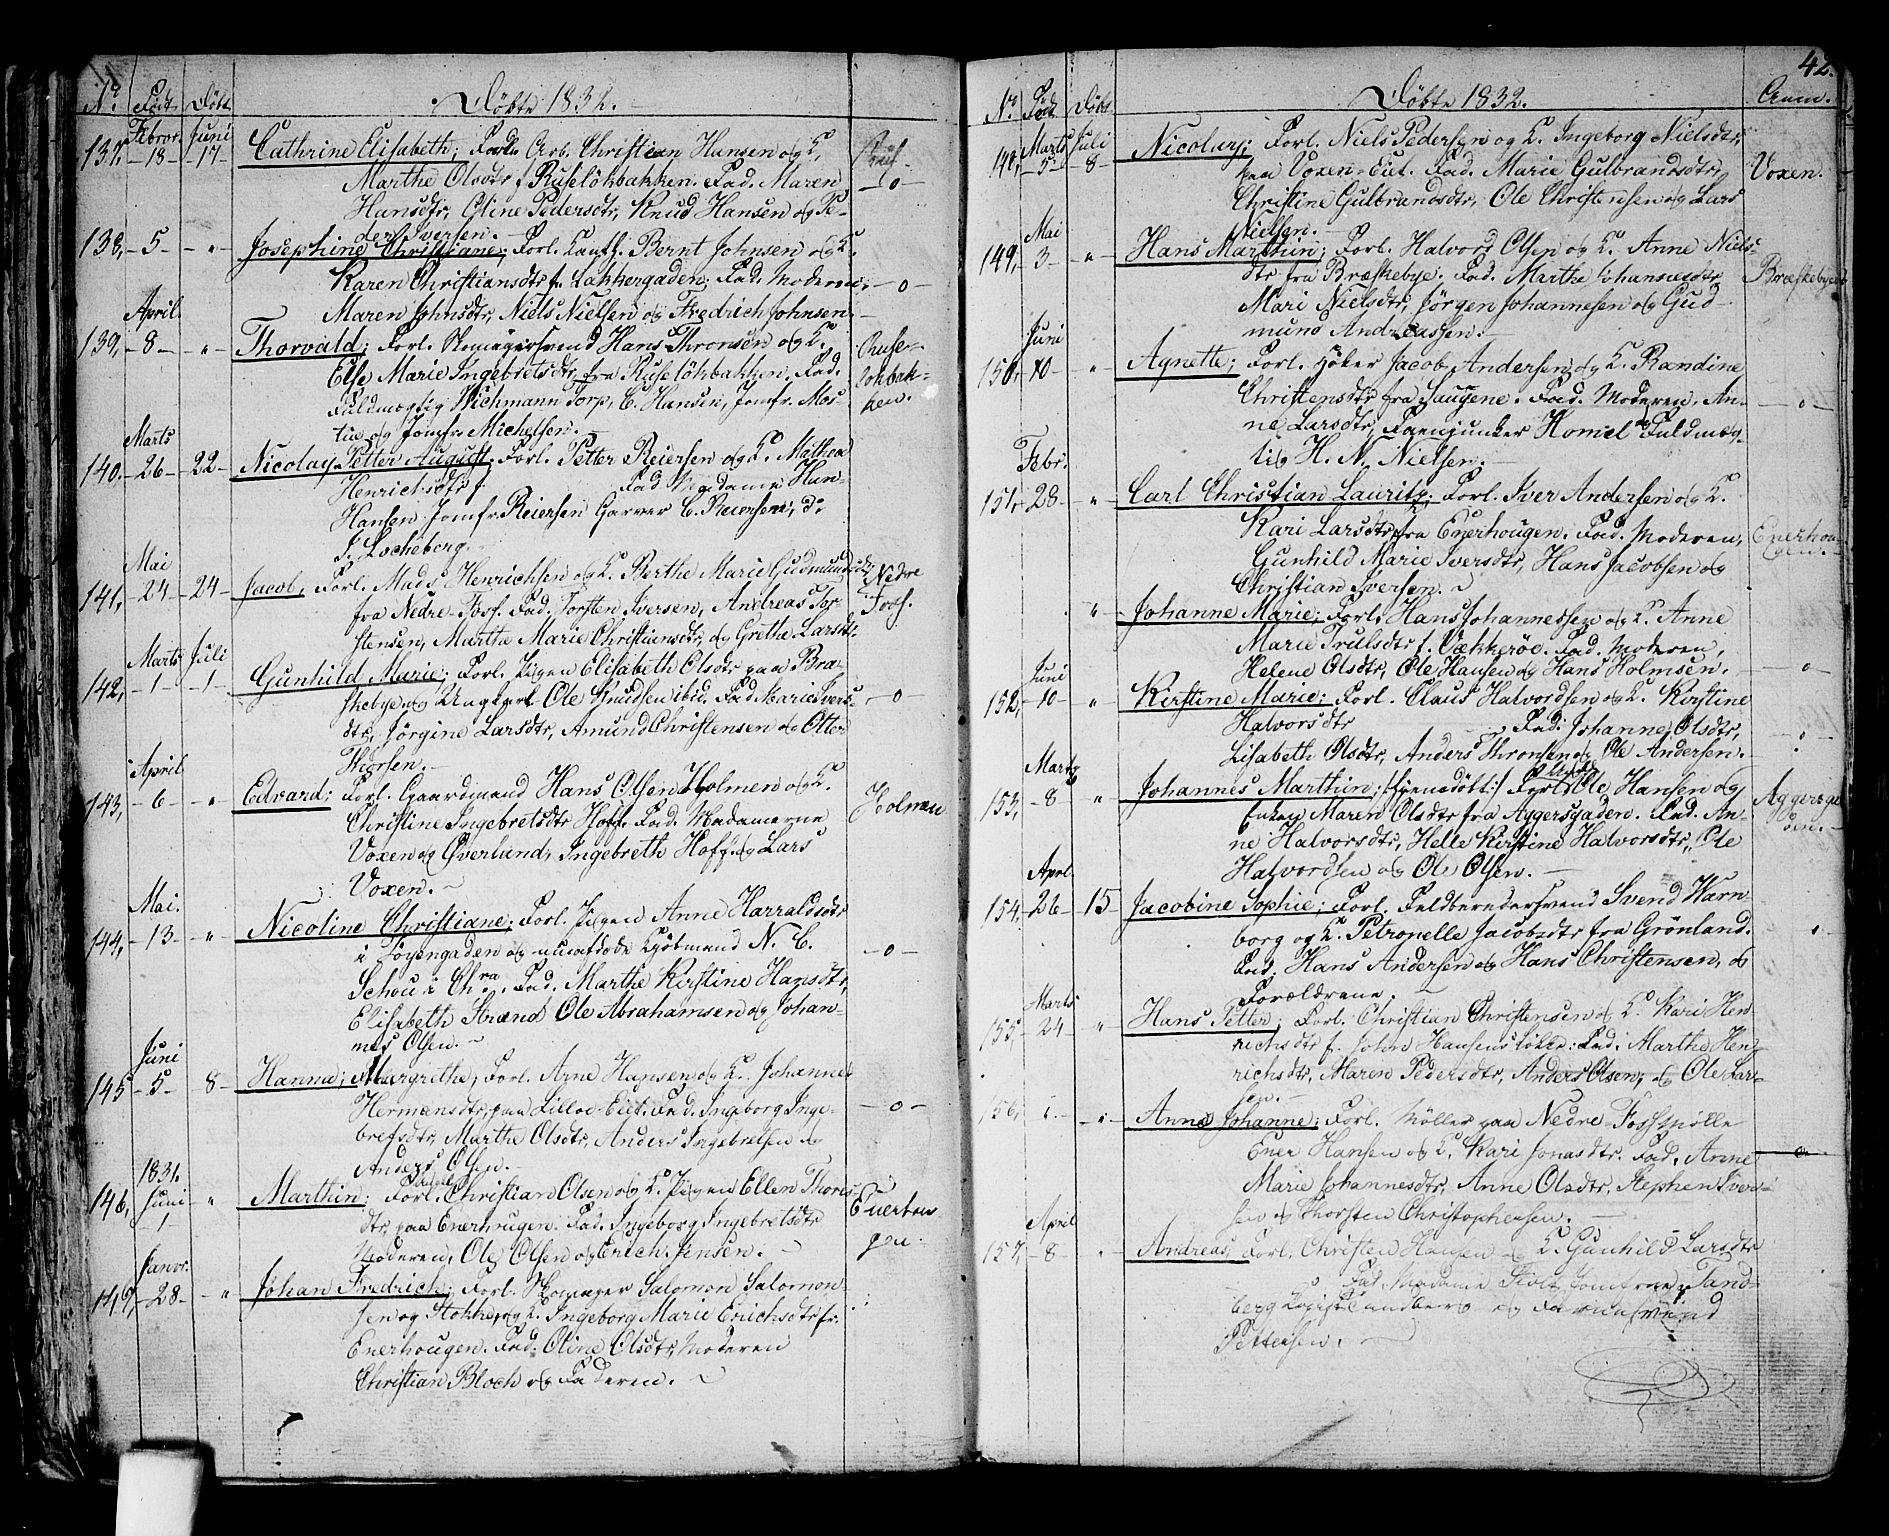 Døbte 1832.
No Født Døbt
137, Febror. 18 Juni 17 Cathrine Elisabeth; Forl. Arb. Christian Hansen og K.
Marthe Olsdtr f. Ruseløkbakken. Fad. Maren
Hansdtr, Oline Pedersdtr, Knud Hansen og Pe-
der Iversen.
138, 5 " Josephine Christiane; Forl. Bernt Johnsen og K.
Karen Christiansdtr f. Lakkergaden; Fad. Moderen, -o-
Maren Johnsdtr, Niels Nielsen og Fredrich Johnsen
139, April 8 " Thorvald; Forl. Skomagersvend Hans Thronsen og K.
Else Marie Ingebretsdtr fra Ruseløkbakken. Fad. Ruse-
Fuldmægtig Wichmann Torp, C. Hansen, Jomfr. Mor- løkbak-
tue og Jomfr. Michelsen. ken.
140. Marts 26 22 Nicolay Petter August. Forl. Petter Reiersen og K. Mathea
Henrichsdtr f. Fad. Madame Han-
Hansen Jomfr. Reiersen Garver C. Reiersen, do
J. Locheborg.
141, Mai 24 24 Jacob, Forl. Mads Henrichsen og K. Berthe Marie Gudmundsdtr Nedre
fra Nedre-Foss. Fad. Torsten Iversen, Andreas Tor- Foss.
stensen, Marthe Marie Christiansdtr, og Grethe Larsdtr.
142, Marts 1 Juli 1 Gunhild Marie; Forl. Pigen Elisabeth Olsdtr paa Bræ-
skebye og Ungkarl Ole Knudsen ibid. Fad. Marie Ivers- -o-
dtr, Jørgine Larsdtr, Amund Christensen og Otter
Thorsen.
143, April 6 " Edvard; Forl. Gaardmand Hans Olsen Holmen og K. Holmen
Christine Ingebretsdtr Hoff. Fad. Madamerne
Voxen og Øverland, Ingebreth Hoff og Lars
Voxen.
144, Mai. 13 " Nicoline Christiane; Forl. Pigen Anne Harraldsdtr
i Tøyengaden og Kjøbmand N. C. -o-
Schou i Chra. Fad. Marthe Kirstine Hansdtr,
Elisabeth Strand Ole Abrahamsen og Johan-
nes Olsen.
145 Juni 5 8 Hanna Margrethe; Forl. Arne Hansen og K. Johanne
Hermansdtr, paa Lilloe-Eiet. Fad. Ingeborg Inge- -o-
bretsdtr, Marthe Olsdtr, Anders Ingebretsen og
Anders Olsen.
146, 1831. Juni 1 " Marthin; Forl. Christian Olsen og K. Pigen Ellen Thores- Enerhou-
dtr, paa Enerhougen. Fad. Ingeborg Ingebretsdtr gen.
Moderen, Ole Olsen og Erich Jensen.
147, Janvr. 28 " Johan Fredrich; Forl. Skomager Salomon Salomon-
sen og K. Ingeborg Marie Erichsdtr fr.
Enerhougen. Fad. Oline Olsdtr, Moderen
Christian Bloch og Faderen.
42.
Døbte 1832.
No Fød Døbt Anm.
148, Marts 5 Juli 8 Nicolay; Forl. Niels Pedersen og K. Ingeborg Nielsdtr,
paa Voxen-Eiet. Fad. Marie Gulbrandsdtr, Voxen.
Christine Gulbrandsdtr, Ole Christensen og Lars
Nielsen.
149, Mai 3 " Hans Marthin; Forl. Halvord Olsen og K. Anne Niels-
dtr fra Bræskebye. Fad. Marthe Johannesdtr, Bræskebye
Mari Nielsdtr, Jørgen Johannesen og Gud-
mund Andreassen.
150, Juni 10 " Agnette; Forl. Høker Jacob Andersen og K. Randine
Christensdtr fra Saugene. Fad. Moderen, An- -o-
ne Larsdtr, Faenjunker Homel og Fuldmæg-
tig H. N. Nielsen.
151, Febr. 28 " Carl Christian Lauritz; Forl. Iver Andersen og K.
Kari Larsdtr fra Enerhougen. Fad. Moderen, Enerhou-
Gunhild Marie Iversdtr, Hans Jacobsen og gen.
Christian Iversen.
" Johanne Marie; Forl. Hans Johannessen og K. Anne
Marie Trulsdtr f. Vækkerøe. Fad. Moderen,
Helene Olsdtr, Ole Hansen og Hans Holmsen. -o-
152, Juni 10 " Kirstine Marie; Forl. Claus Halvordsen og K. Kirstine
Halvorsdtr Fad. Johanne Olsdtr, -o-
Lisabeth Olsdtr, Anders Thronsen og Ole Andersen.
153, Marts 8 " Johannes Marthin; (hjemedøbt) Forl. Ole Hansen og Aggersga-
Enken Maren Olsdtr fra Aggersgaden. Fad. An- den.
ne Halvorsdtr, Helle Kirstine Halvorsdtr, Ole
Halvordsen og Ole Olsen.
154, April 26 15 Jacobine Sophie; Forl. Feldberedersvend Svend Warn-
borg og K. Petronelle Jacobsdtr fra Grønland.
Fad. Hans Andersen og Hans Christensen, og
Forældrene.
155, Marts 24 " Hans Petter; Forl. Christian Christensen og K. Kari Hen-
richsdtr f. John Hansens Løkke: Fad. Marthe Hen-
richsdtr, Maren Pedersdtr, Anders Olsen, og Ole Lar-
sen.
156, " Anne Johanne; Forl. Møller paa Nedre-Fossmølle
Ener Hansen og K. Kari Jonasdtr. Fad. Anne -o-
Marie Johannesdtr, Anne Olsdtr, Stephen Iver-
sen og Thorsten Christophersen.
157, April 8 " Andreas, Forl. Christen Hansen og K. Gunhild Larsdtr
Fad. Madame Stolz Jomfrue Tand-
berg Kopist Tandberg og
Pettersen.